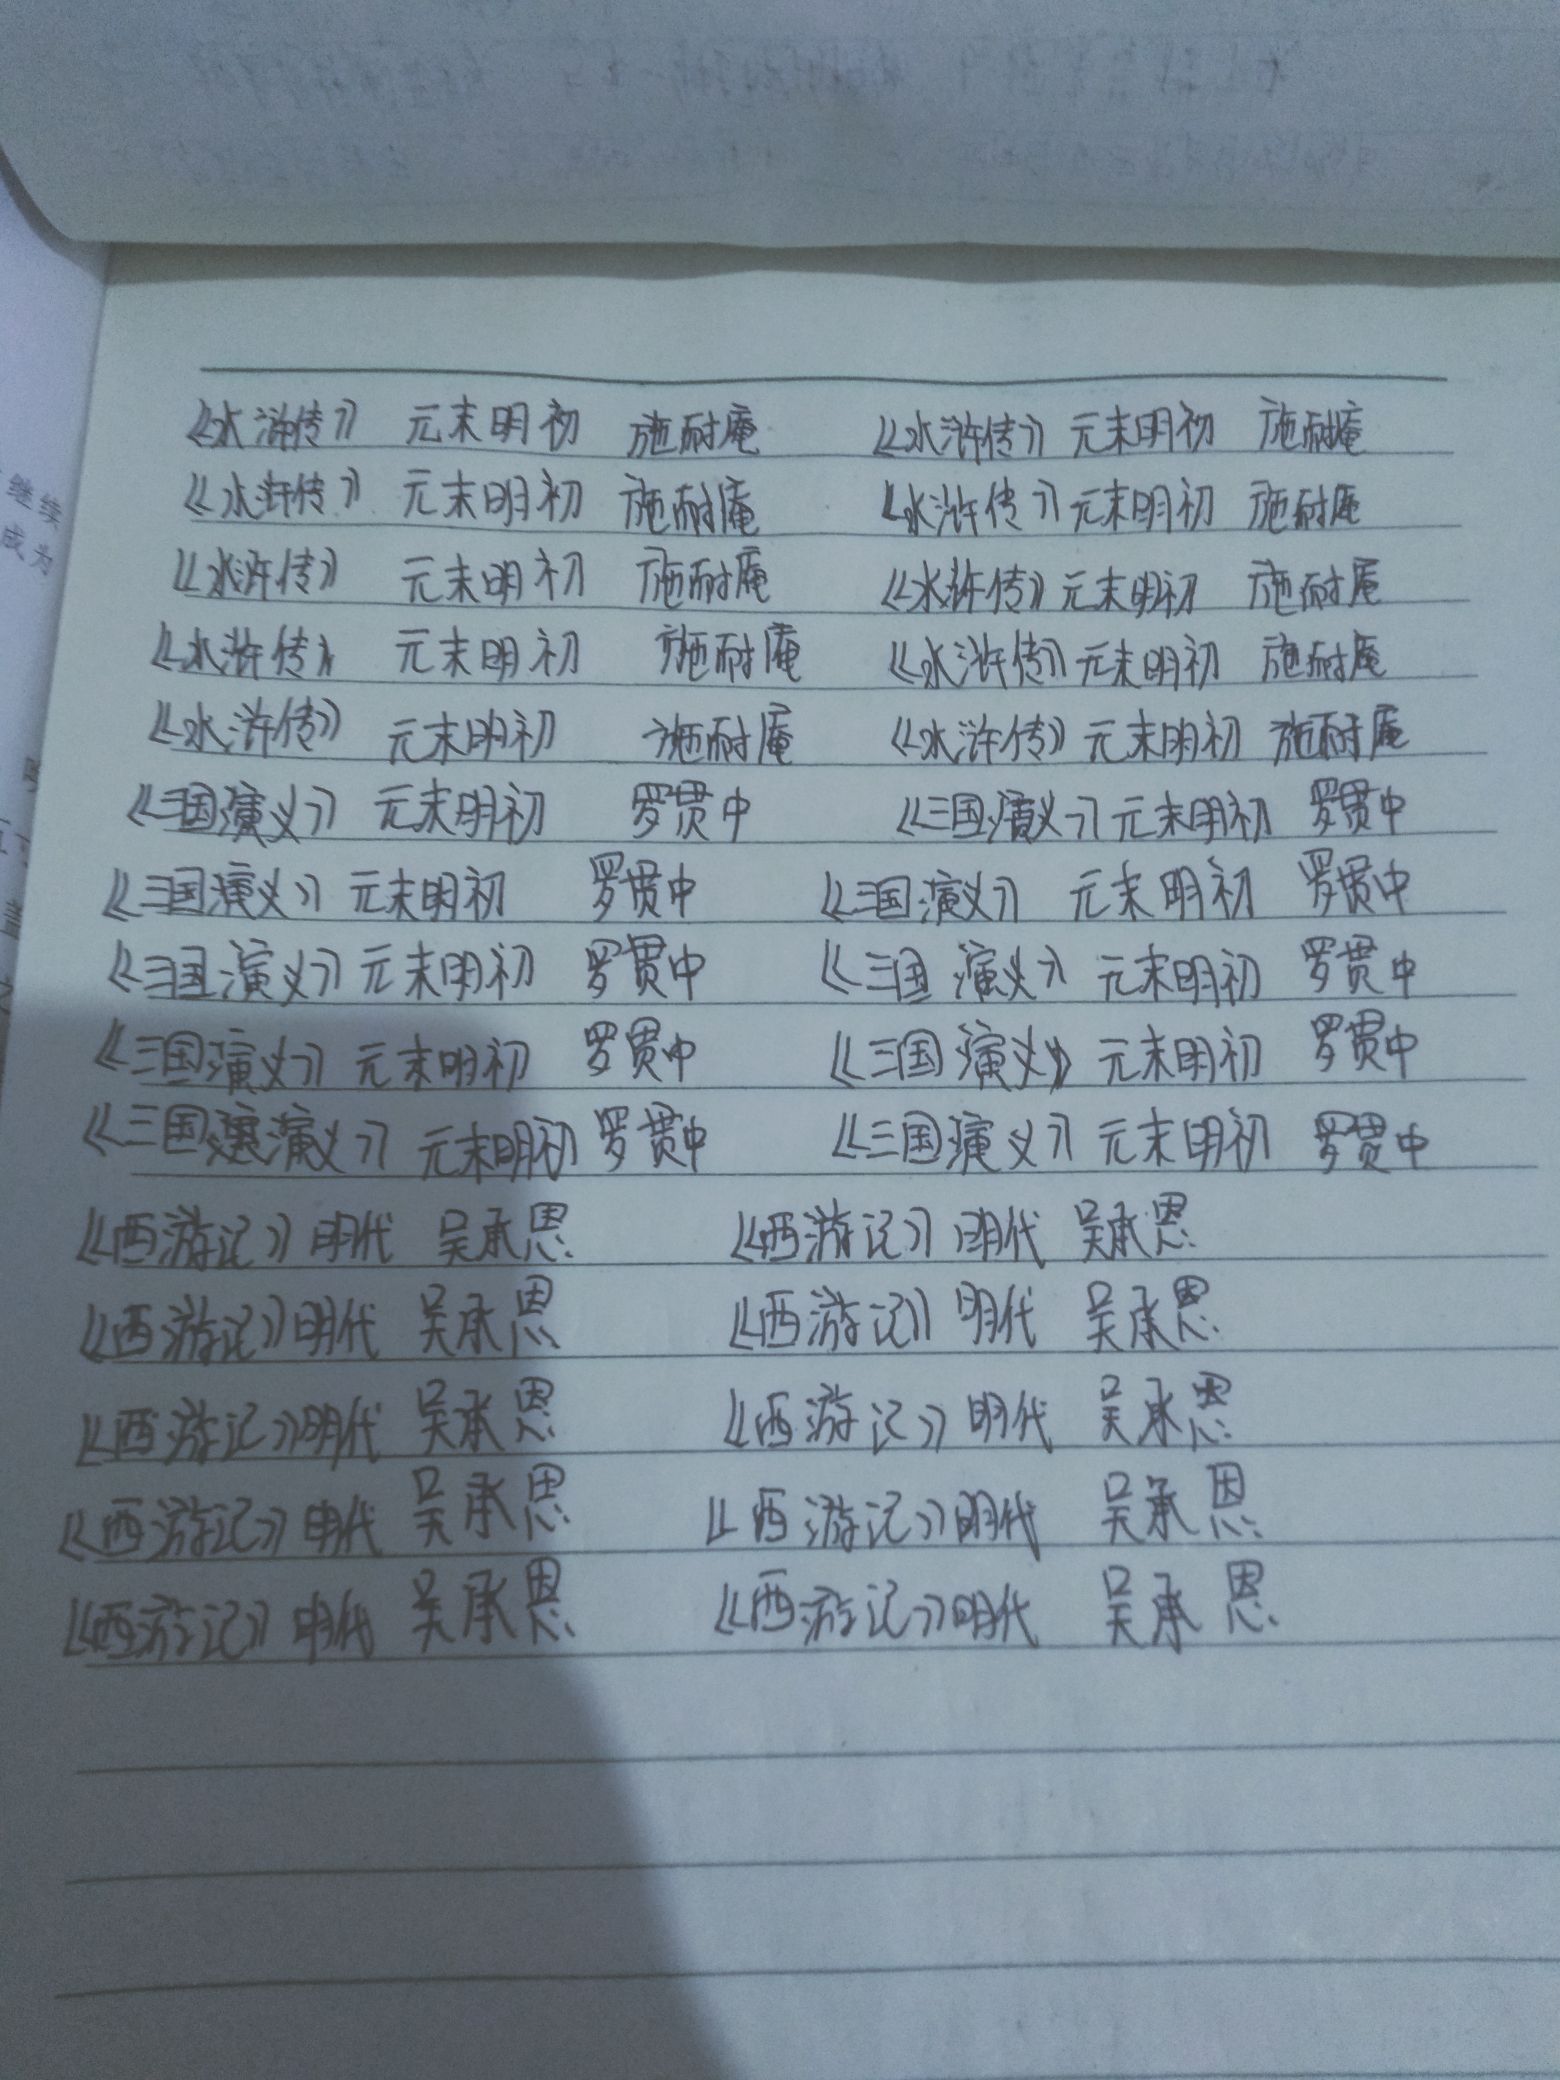 继续
成为
《水浒传》 元末明初 施耐庵 《水浒传》 元末明初 施耐庵
《水浒传》 元末明初 施耐庵 《水浒传》 元末明初 施耐庵
《水浒传》 元末明初 施耐庵 《水浒传》 元末明初 施耐庵
《水浒传》 元末明初 施耐庵 《水浒传》 元末明初 施耐庵
《水浒传》 元末明初 施耐庵 《水浒传》 元末明初 施耐庵
《三国演义》 元末明初 罗贯中 《三国演义》 元末明初 罗贯中
《三国演义》 元末明初 罗贯中 《三国演义》 元末明初 罗贯中
《三国演义》 元末明初 罗贯中 《三国演义》 元末明初 罗贯中
《三国演义》 元末明初 罗贯中 《三国演义》 元末明初 罗贯中
《三国演义》 元末明初 罗贯中 《三国演义》 元末明初 罗贯中
《西游记》 明代 吴承恩 《西游记》 明代 吴承恩
《西游记》 明代 吴承恩 《西游记》 明代 吴承恩
《西游记》 明代 吴承恩 《西游记》 明代 吴承恩
《西游记》 明代 吴承恩 《西游记》 明代 吴承恩
《西游记》 明代 吴承恩 《西游记》 明代 吴承恩